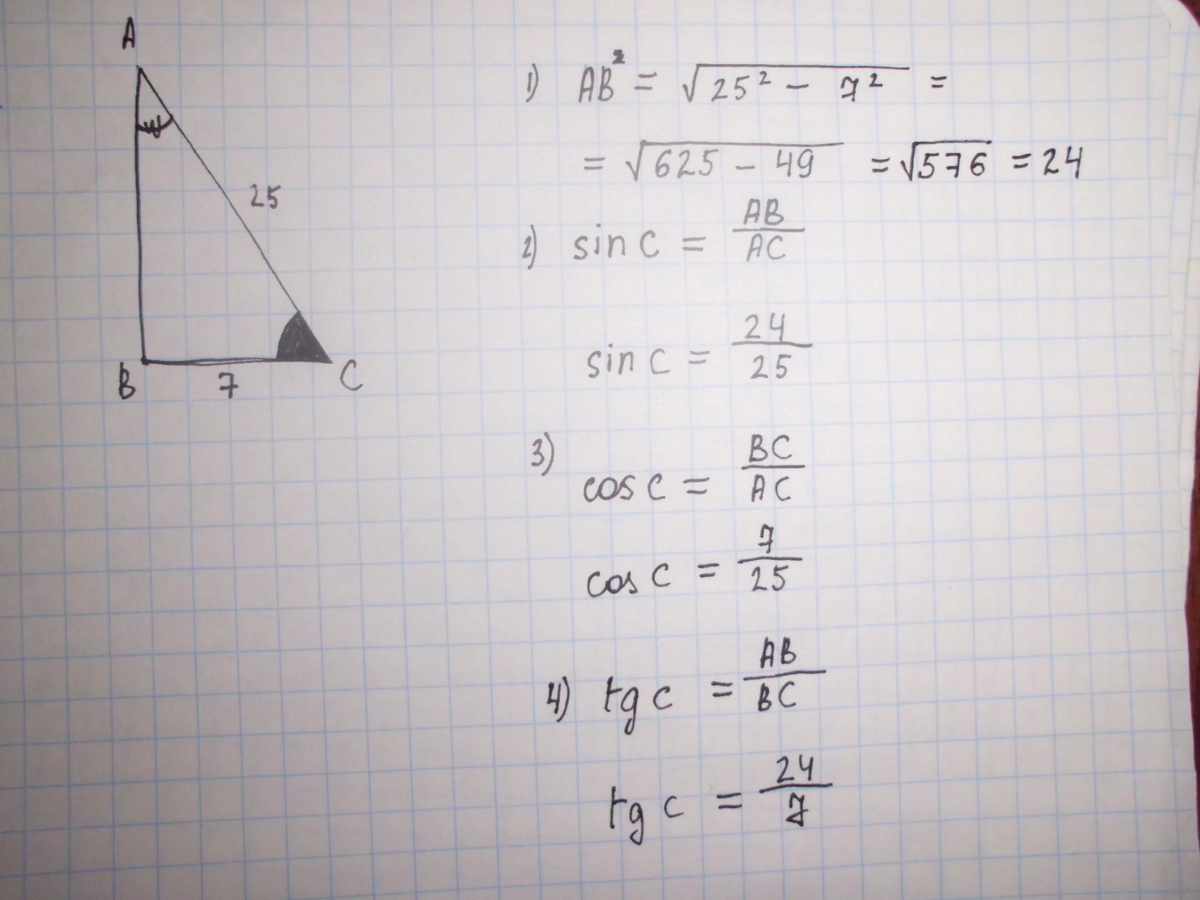 A
25
B 7 C
1) AB² = √25² − 7² =
= √625 − 49 = √576 = 24
2) sin C = AB/AC
sin C = 24/25
3) cos C = BC/AC
cos C = 7/25
4) tg C = AB/BC
tg C = 24/7